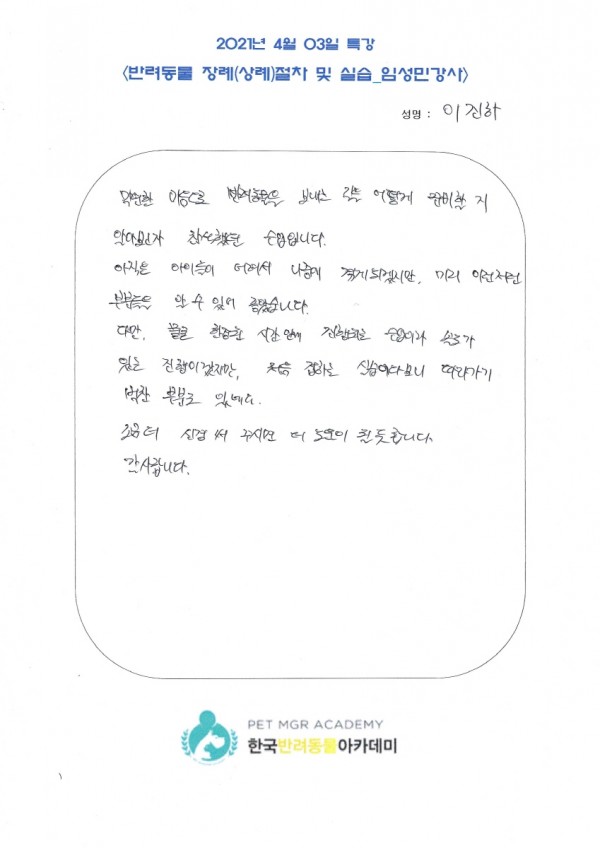 2021년 4월 03일 특강
<반려동물 장례(상례)절차 및 실습_임성민강사>
성명 : 이진하
막연한 마음으로 반려동물을 보내는 길을 어떻게 준비할 지
알아보고자 참석했던 수업입니다.
아직은 아이들이 어려서 나중에 겪게 되겠지만, 미리 이런저런
부분들을 알 수 있어 좋았습니다.
다만, 짧은 한정된 시간 안에 진행되는 수업이라 속도가
있는 진행이겠지만, 처음 접하는 실습이다보니 따라가기
벅찬 부분도 있네요.
조금 더 신경 써 주시면 더 도움이 될 듯합니다.
감사합니다.
PET MGR ACADEMY
한국반려동물아카데미